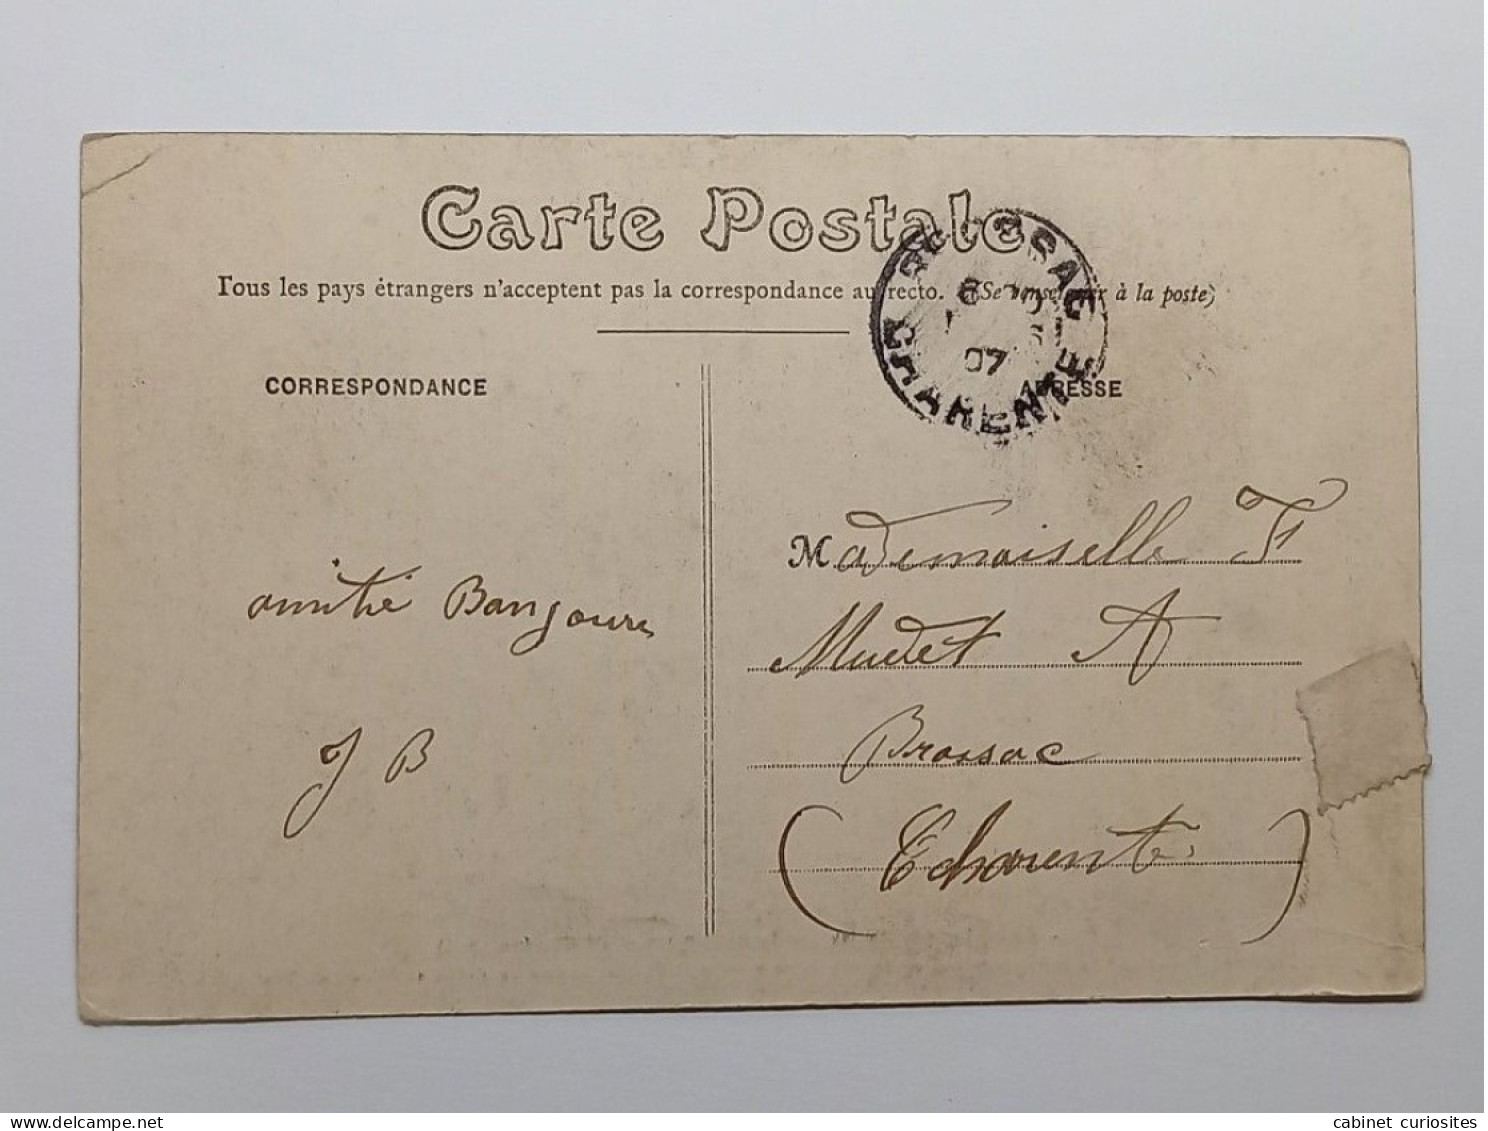 Carte Postale
Tous les pays étrangers n'acceptent pas la correspondance au recto. (Se renseigner à la poste)
BROSSAC
6
07
CHARENTE
CORRESPONDANCE
ADRESSE
amitié Bonjour
J B
Mademoiselle F
Mudet A
Brossac
(Charente)
cabinet curiosites